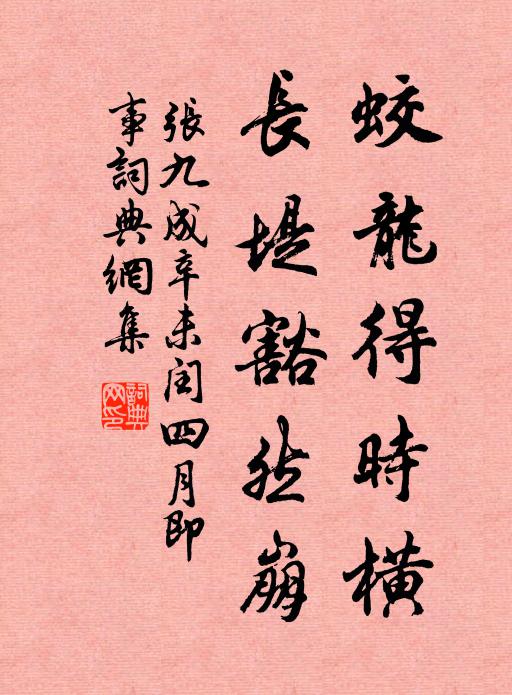 蛟龍得時橫
長堤豁然崩
張九成辛未閏四月即
事詞典網集
詞典
网印